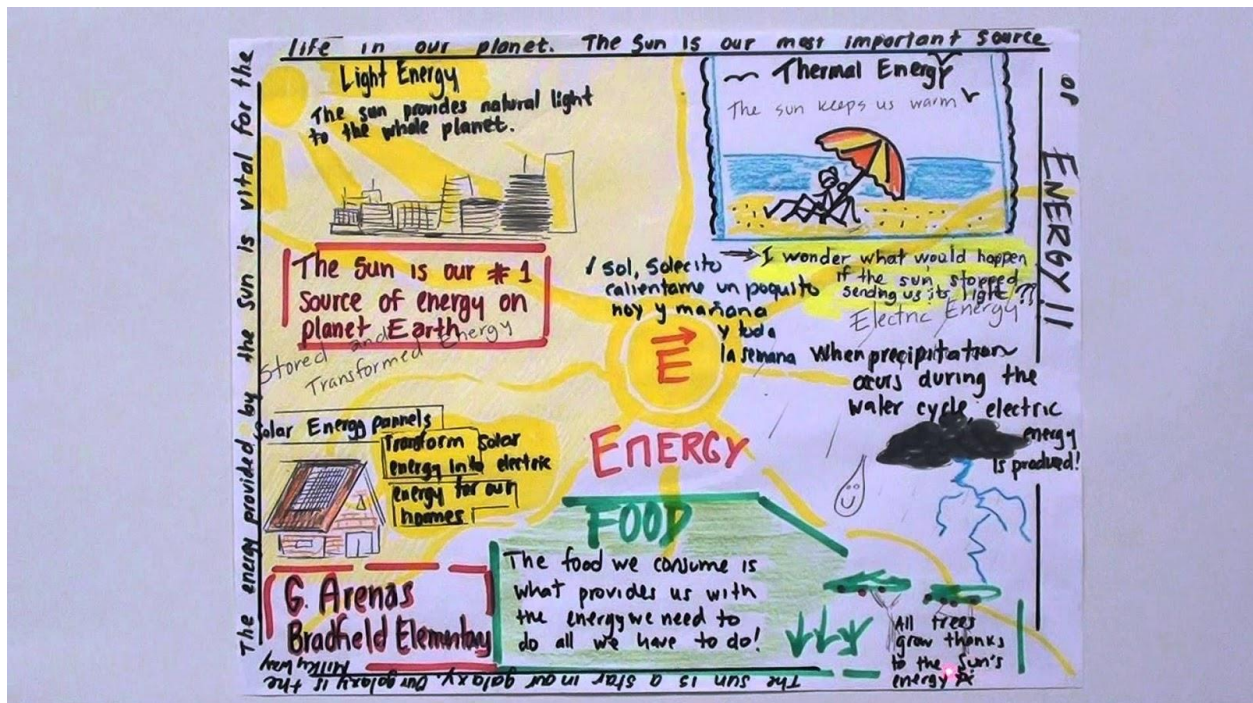 The energy provided by the sun is vital for the
life in our planet. The Sun is our most important source
of ENERGY!!
Light Energy
The sun provides natural light
to the whole planet.
Thermal Energy
The sun keeps us warm
The Sun is our #1
source of energy on
planet Earth
Stored and
Transformed Energy
Sol, Solecito
calientame un poquito
hoy y mañana
y toda
la semana
I wonder what would happen
if the sun stopped
sending us its light??
Electric Energy
When precipitation
ocurs during the
water cycle, electric
energy
is produced!
E
ENERGY
Solar Energy pannels
Transform Solar
energy into electric
energy for our
hommes
FOOD
The food we consume is
what provides us with
the energy we need to
do all we have to do!
G. Arenas
Bradfield Elementary
All trees
grow thanks
to the Sun's
energy
The sun is a star in our galaxy. Our galaxy is the
Milky Way